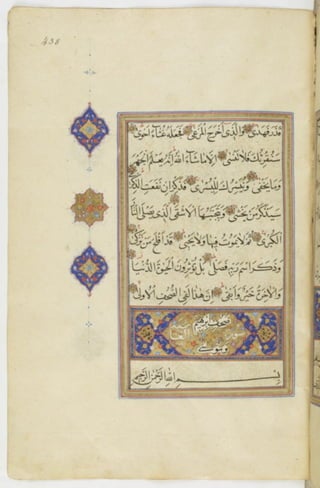 438
قدر فهدى والذى اخرج المرعى فجعله غثاء احوى
سنقرئك فلا تنسى الا ما شاء الله انه يعلم الجهر
وما يخفى ونيسرك لليسرى فذكر ان نفعت الذكرى
سيذكر من يخشى ويتجنبها الاشقى الذى يصلى النار
الكبرى ثم لا يموت فيها ولا يحيى قد افلح من تزكى
وذكر اسم ربه فصلى بل تؤثرون الحيوة الدنيا
والاخرة خير وابقى ان هذا لفى الصحف الاولى
صحف ابرهيم
وموسى
سورة الغاشية
بسم الله الرحمن الرحيم